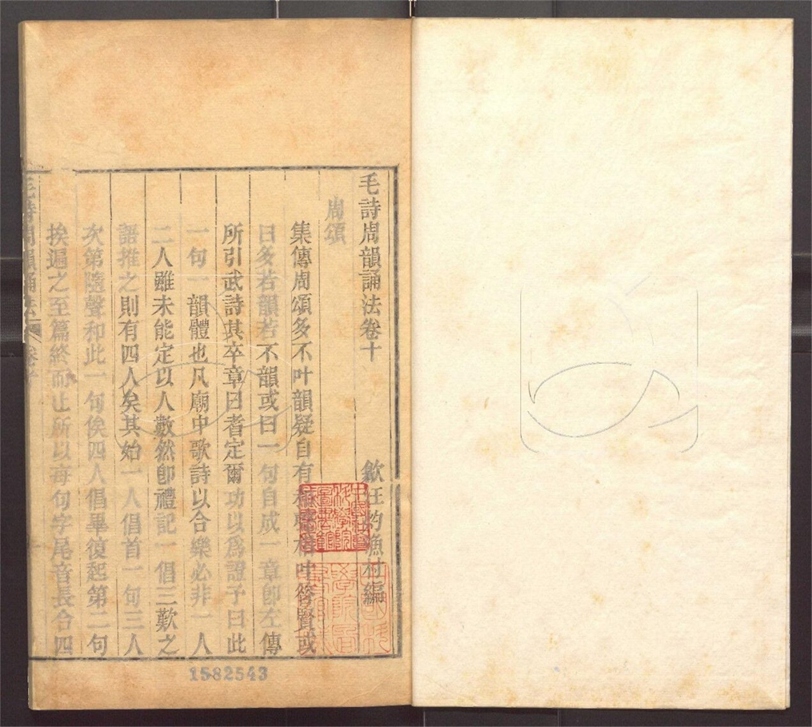 毛詩周韻誦法卷十
歙汪灼漁村編
周頌
集傳周頌多不叶韻疑自有和聲相叶答賢或
曰多若韻若不韻或曰一句自成一章即左傳
所引武詩其卒章曰耆定爾功以為證予曰此
一句一韻體也凡廟中歌詩以合樂必非一人
二人雖未能定以人數然卽禮記一倡三歎之
語推之則有四人矣其始一人倡首一句三人
次第隨聲和此一句俟四人倡畢復起第二句
挨遍之至篇終而止所以每句字尾音長合四
毛詩周韻誦法 卷十
1582543